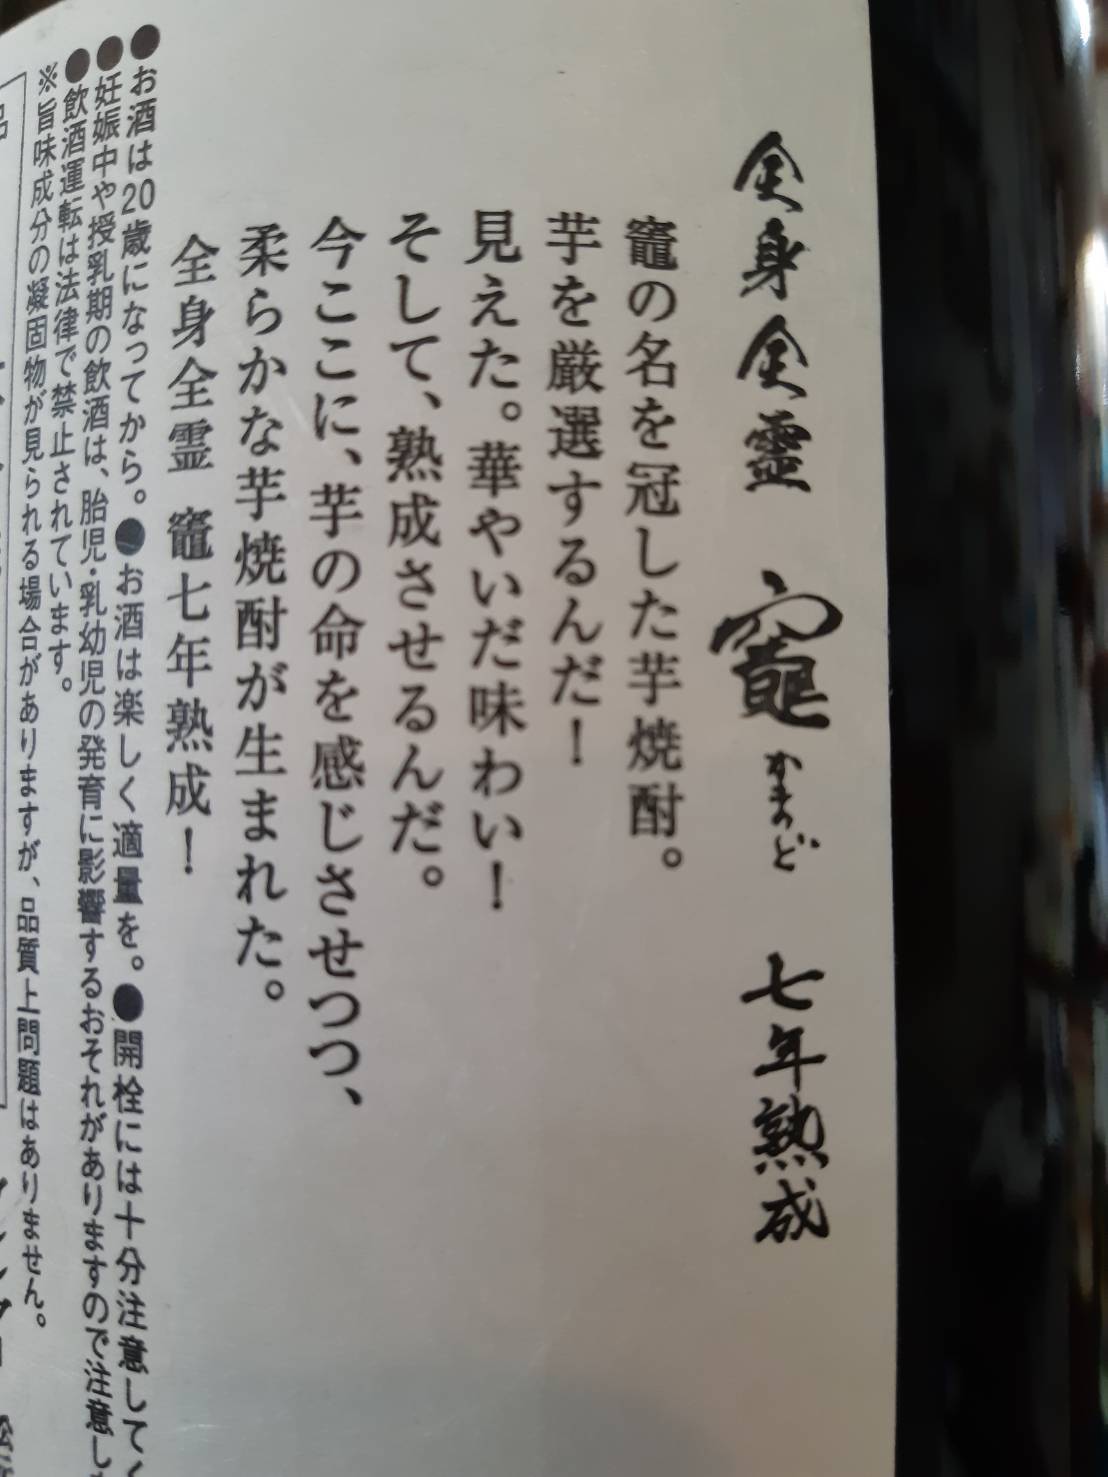 全身全霊 竈 かまど 七年熟成
竈の名を冠した芋焼酎。
芋を厳選するんだ！
見えた。華やいだ味わい！
そして、熟成させるんだ。
今ここに、芋の命を感じさせつつ、
柔らかな芋焼酎が生まれた。
全身全霊 竈七年熟成！
●お酒は20歳になってから。●お酒は楽しく適量を。●開栓には十分注意して、
●妊娠中や授乳期の飲酒は、胎児・乳幼児の発育に影響するおそれがありますので注意し
●飲酒運転は法律で禁止されています。
※旨味成分の凝固物が見られる場合がありますが、品質上問題はありません。